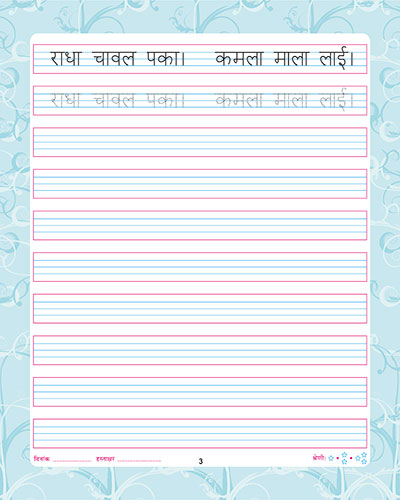 राधा चावल पका। कमला माला लाई।
राधा चावल पका। कमला माला लाई।
दिनांक .................... हस्ताक्षर .................... 3 श्रेणी: